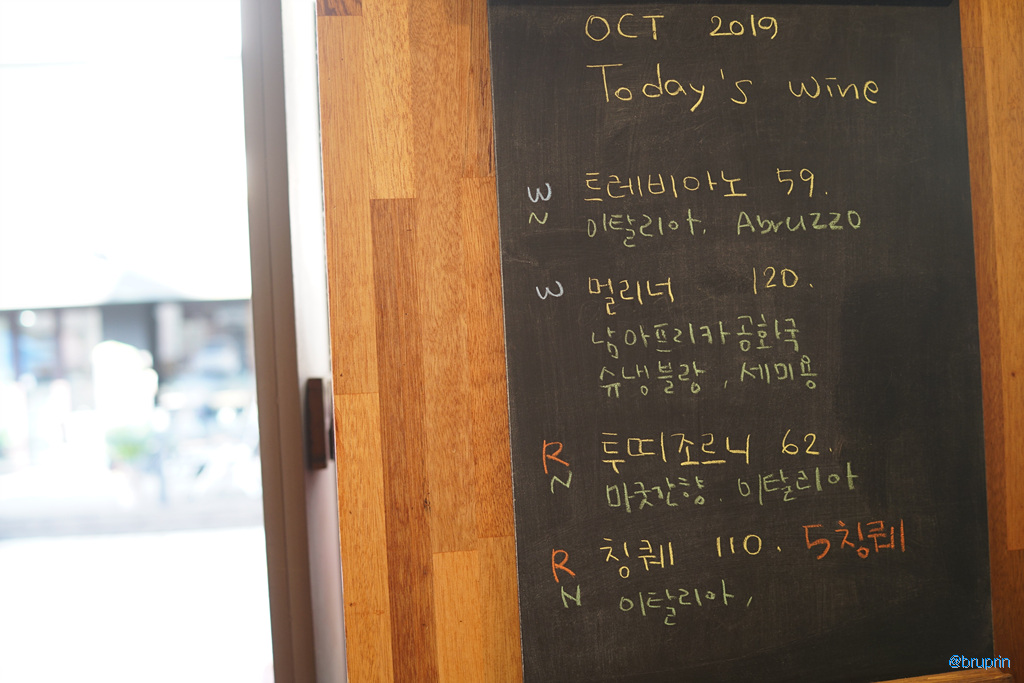 OCT 2019
Today's wine
W 트레비아노 59.
N 이탈리아. Abruzzo
W 멀리너 120.
남아프리카공화국
슈냉블랑, 세미용
R 투띠조르니 62.
N 마굿간향. 이탈리아
R 칭퀘 110. 5칭퀘
N 이탈리아,
@bruprin